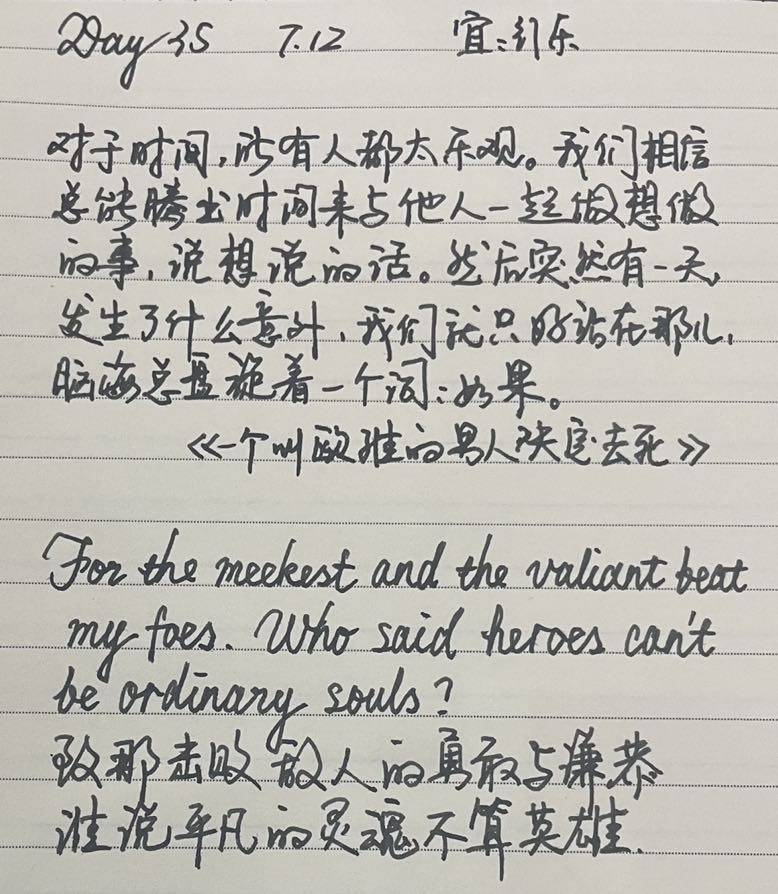 Day 35 7.12 宜:行乐
对于时间,所有人都太乐观。我们相信
总能腾出时间来与他人一起做想做
的事,说想说的话。然后突然有一天,
发生了什么意外,我们就只好站在那儿,
脑海总盘旋着一个词:如果。
《一个叫欧维的男人决定去死》
For the meekest and the valiant beat
my foes. Who said heroes can't
be ordinary souls?
致那击败敌人的勇敢与廉恭
谁说平凡的灵魂不算英雄.